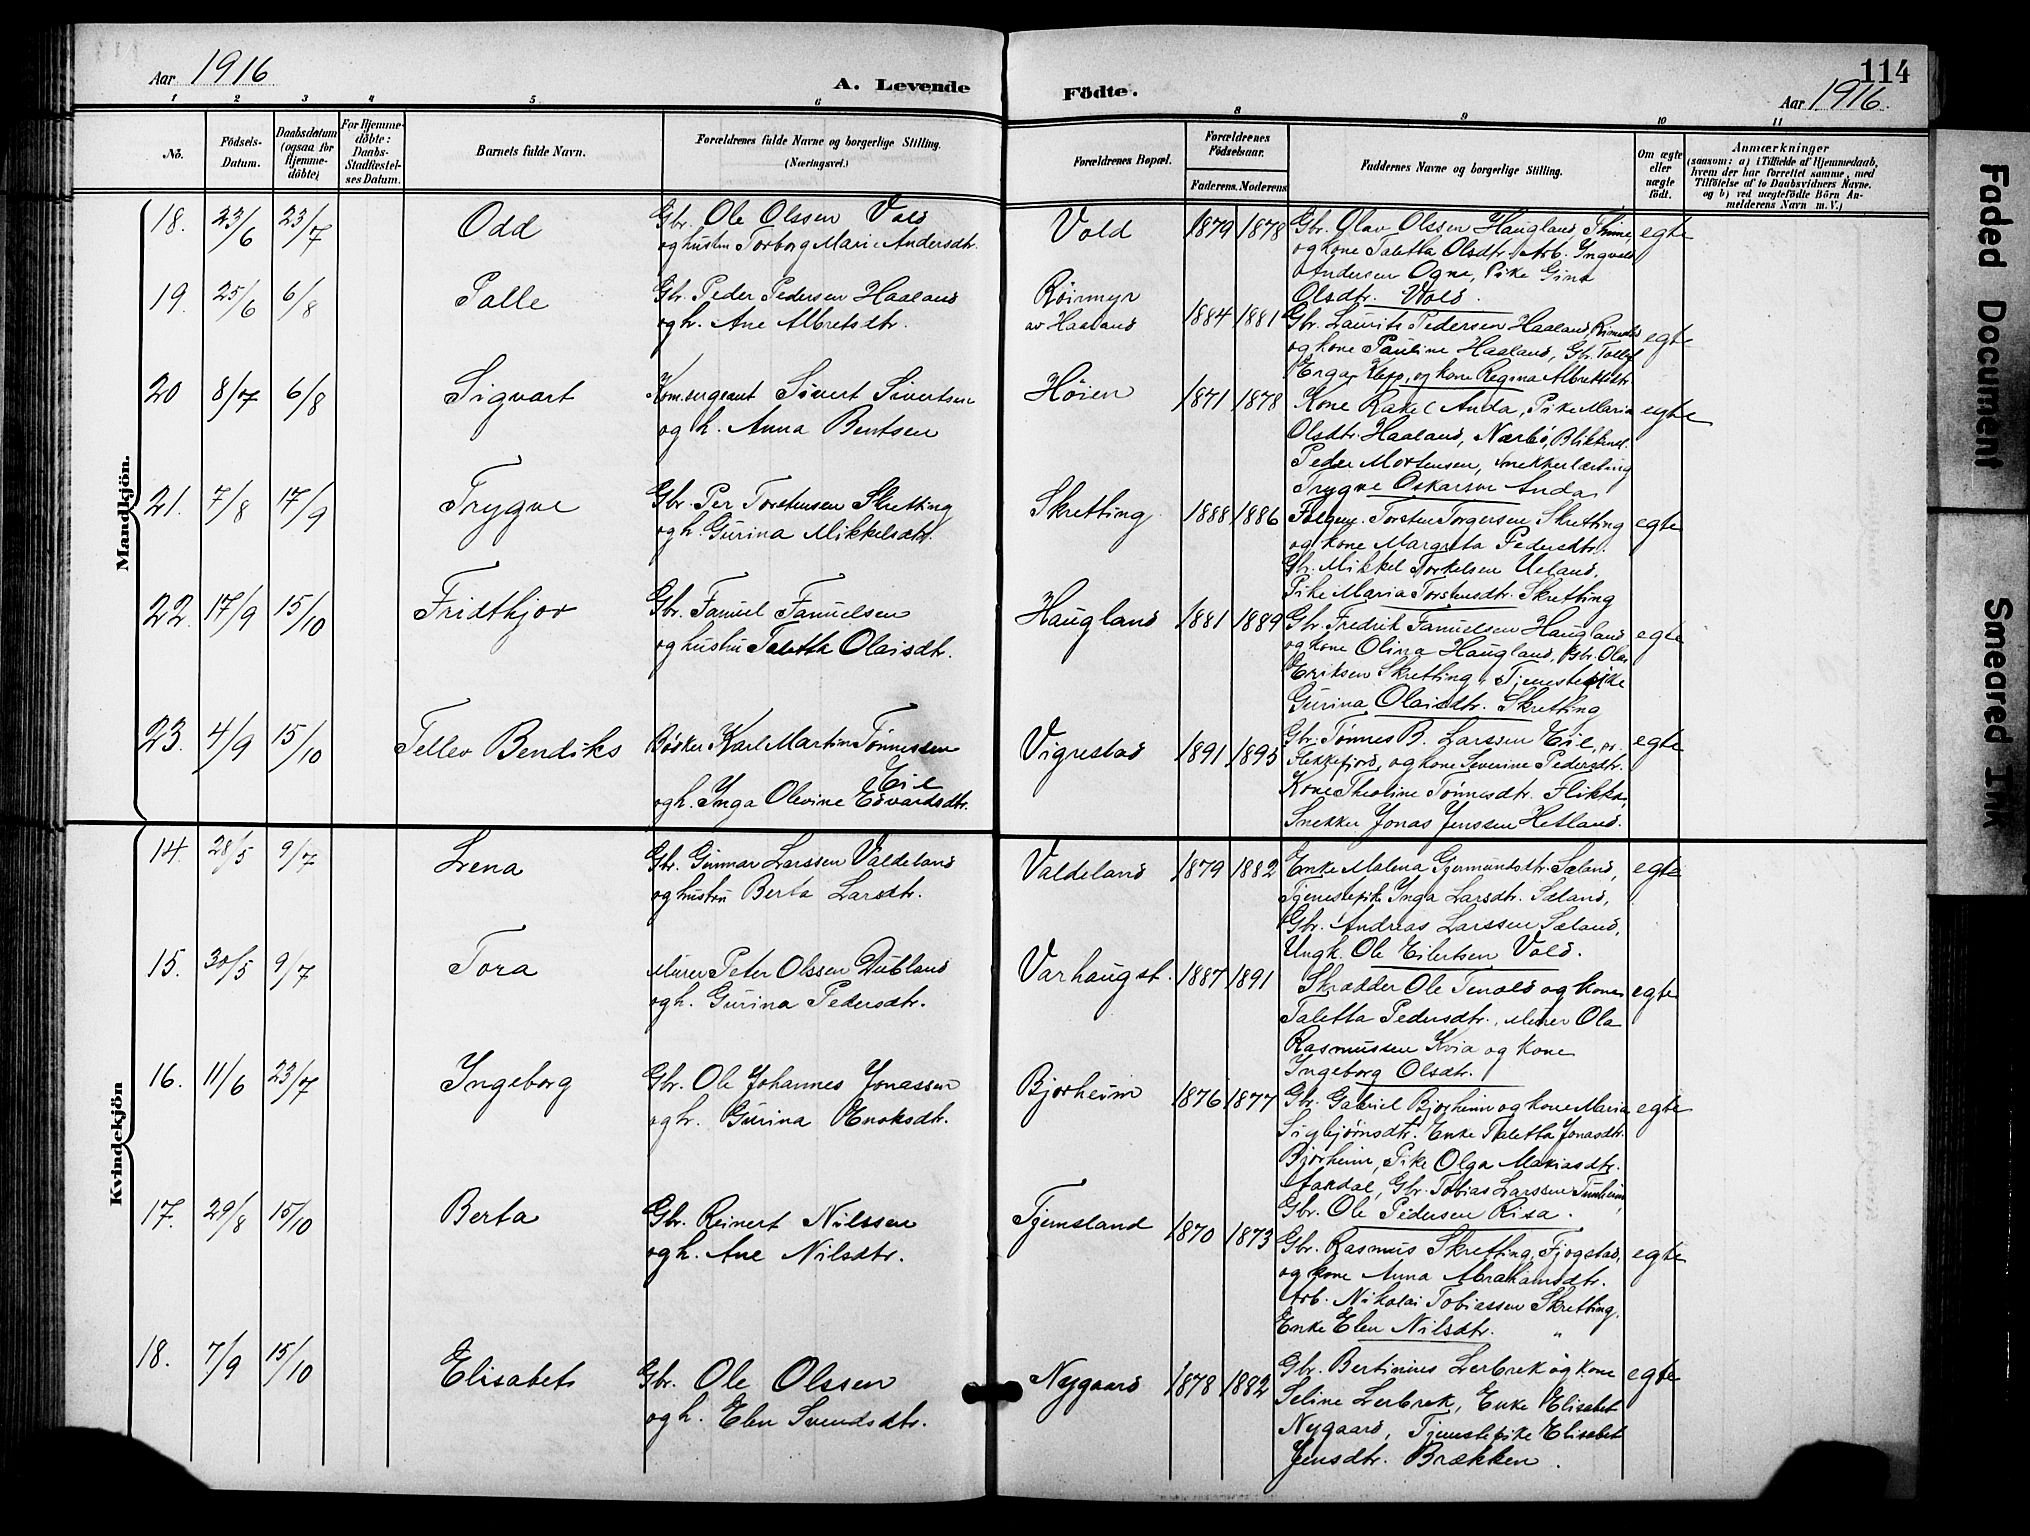 Aar 1916
A. Levende
Födte.
114
Aar 1916.
1 2 3 4 5 6 8 9 10 11
No.
Födsels-Datum.
Daabsdatum (ogsaa for Hjemme-döbte)
For Hjemme-döbte: Daabs-Stadfæstel-ses Datum.
Barnets fulde Navn.
Forældrenes fulde Navne og borgerlige Stilling. (Næringsvei.)
Forældrenes Bopæl.
Forældrenes Födselsaar.
Faderens. Moderens
Faddernes Navne og borgerlige Stilling.
Om ægte eller uægte födt.
Anmærkninger
(saasom: a) i Tilfælde af Hjemmedaab, hvem der har forrettet samme, med Tilföielse af to Daabsvidners Navne, og b) ved uægtefödte Börn An-melderens Navn m. V.)
Mandkjön.
18. 23/6 23/7 Odd
Gbr. Ole Olssen Vold
og hustru Torborg Marie Andersdtr.
Vold 1879 1878
Gbr. Olav Olssen Haugland, Thime,
og kone Taletta Olsdtr. Arb. Ingvald
Andersen Ogne, Pike Gina
Olsdtr. Vold.
egte
19. 25/6 6/8 Palle
Gbr. Peder Pedersen Haaland
og h. Ane Albretsdtr.
Röirmyr
av Haaland
1884 1881
Gbr. Laurits Pedersen Haaland,
og kone Pauline Haaland, Gbr. Tollef
Erga, Klepp, og kone Regina Albrettsdtr
egte
20 8/7 6/8 Sigvart
Kom.sergeant Sivert Sivertsen
og h. Anna Bentsen
Höien 1871 1878
Kone Rakel Anda, Pike Maria
Olsdtr. Haaland, Nærbö, Blikkensl.
Peder Mortensen, snekkerlærling
Trygve Oskarson Anda
egte
21. 7/8 17/9 Trygve
Gbr. Per Torstensen Skretting
og h. Gurina Mikkelsdtr.
Skretting 1888 1886
Folgem. Torsten Torgersen Skretting
og kone Margreta Pedersdtr.
Gbr. Mikkel Torkelsen Ueland,
Pike Maria Torstensdtr. Skretting
egte
22. 17/9 15/10 Fridthjov
Gbr. Fanuel Fanuelsen
og hustru Taletta Olaisdtr.
Haugland 1881 1889
Gbr. Fredrik Fanuelsen Haugland
og kone Olina Haugland, Gbr. Olai
Eriksen Skretting, Tjenestepike
Gurina Olaisdtr. Skretting
egte
23. 4/9 15/10 Tellev Bendiks
Bödker Karl Martin Tönnessen
Eie
og h. Inga Olevine Edvardsdtr.
Vigrestad 1891 1895
Gbr. Tönnes B. Larssen Eie, pr.
Flekkefjord, og kone Severine Pedersdtr.
Kone Theoline Tönnesdtr. Flikka,
Snekker Jonas Jenssen Hetland.
egte
Kvindekjön
14. 28/5 9/7 Lena
Gbr. Gunnar Larssen Valdeland
og hustru Berta Larsdtr.
Valdeland 1879 1882
Enke Malena Gjermundsdtr. Sæland,
Tjenestepik Inga Larsdtr. Sæland,
Gbr. Andreas Larssen Sæland,
Ungk. Ole Eilertsen Vold.
egte
15. 30/5 9/7 Tora
Murer Peter Olssen Dubland
og h. Gurina Pedersdtr.
Varhaugst. 1887 1891
Skrædder Ole Tenold og kone
Taletta Pedersdtr., Murer Ola
Rasmussen Kvia og kone
Ingeborg Olsdtr.
egte
16. 11/6 23/7 Ingeborg
Gbr. Ole Johannes Jonassen
og h. Gurina Enoksdtr.
Bjorheim 1876 1877
Gbr. Gabriel Bjorheim og kone Maria
Sigbjørnsdtr. Enke Taletta Jonasdtr.
Bjorheim, Pike Olga Makiasdtr.
Aardal, Gbr. Tobias Larssen Tunheim,
Gbr. Ole Pedersen Risa.
egte
17. 29/8 15/10 Berta
Gbr. Reinert Nilssen
og h. Ane Nilsdtr.
Tjemsland 1870 1873
Gbr. Rasmus Skretting, Fjogstad,
og kone Anna Abrahamsdtr.
Arb. Nikolai Tobiassen Skretting,
Enke Elen Nilsdtr. "
egte
18. 7/9 15/10 Elisabet
Gbr. Ole Olssen
og h. Elen Svendsdtr.
Nygaard 1878 1882
Gbr. Bertinius Lerbrek og kone
Seline Lerbrek, Enke Elisabet
Nygaard, Tjenestepike Elisabet
Jensdtr. Brækken.
egte
Faded Document
Smeared Ink